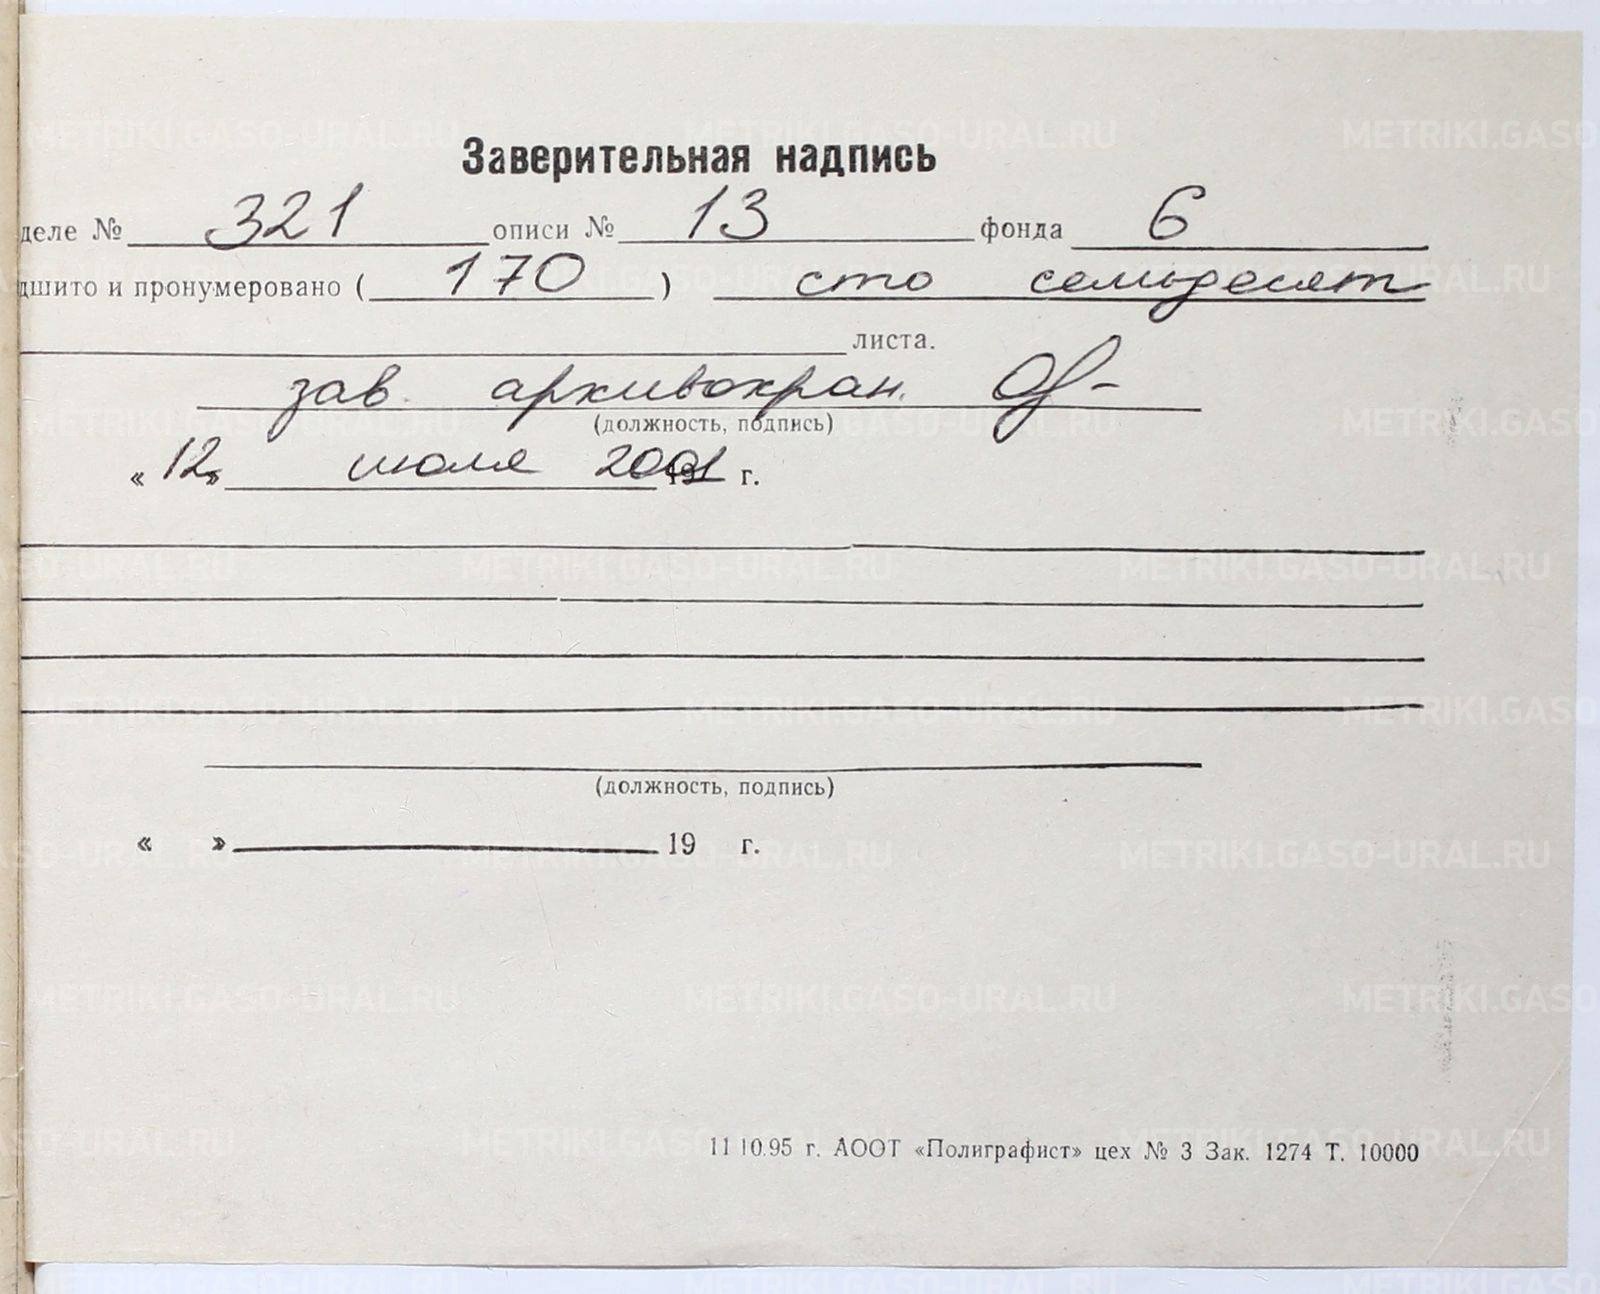 Заверительная надпись
деле № 321 описи № 13 фонда 6
дшито и пронумеровано ( 170 ) сто семьдесят
листа.
зав. архивохран.
(должность, подпись)
« 12 » июля 2001 г.
(должность, подпись)
« » 19 г.
11 10.95 г. АООТ «Полиграфист» цех № 3 Зак. 1274 Т. 10000
METRIKI.GASO-URAL.RU